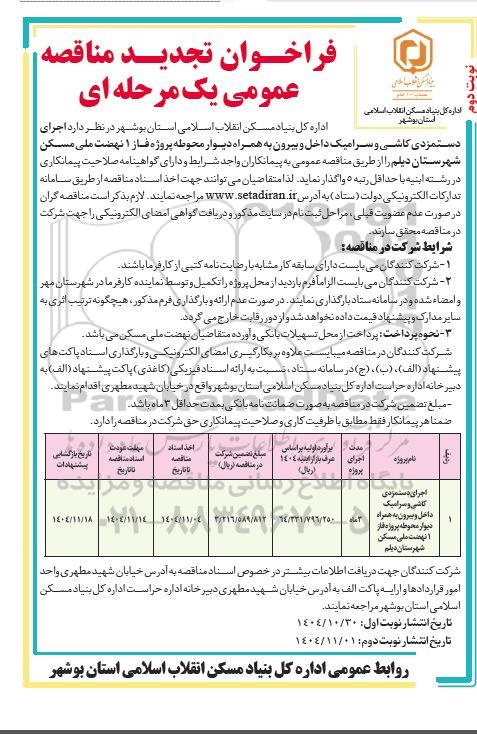 نوبت دوم
فراخوان تجدید مناقصه
عمومی یک مرحله ای
بنیاد مسکن انقلاب اسلامی
اداره کل بنیاد مسکن انقلاب اسلامی
استان بوشهر
اداره کل بنیاد مسکن انقلاب اسلامی استان بوشهر در نظر دارد اجرای
دستمزدی کاشی و سرامیک داخل و بیرون به همراه دیوار محوطه پروژه فاز ۱ نهضت ملی مسکن
شهرستان دیلم را از طریق مناقصه عمومی به پیمانکاران واجد شرایط و دارای گواهینامه صلاحیت پیمانکاری
در رشته ابنیه با حداقل رتبه ۵ واگذار نماید. لذا متقاضیان می توانند جهت اخذ اسناد مناقصه از طریق سامانه
تدارکات الکترونیکی دولت (ستاد) به آدرس www.setadiran.ir مراجعه نمایند. لازم بذکر است مناقصه گران
در صورت عدم عضویت قبلی، مراحل ثبت نام در سایت مذکور و دریافت گواهی امضای الکترونیکی را جهت شرکت
در مناقصه محقق سازند.
شرایط شرکت در مناقصه:
۱- شرکت کنندگان می بایست دارای سابقه کار مشابه با رضایت نامه کتبی از کارفرما باشند.
۲- شرکت کنندگان می بایست الزاماً فرم بازدید از محل پروژه را تکمیل و توسط نماینده کارفرما در شهرستان مهر
و امضاء شده و در سامانه ستاد بارگذاری نمایند. در صورت عدم ارائه و بارگذاری فرم مذکور، هیچگونه ترتیب اثری به
سایر مدارک و پیشنهاد قیمت داده نخواهد شد و از دور رقابت خارج می گردد.
۳- نحوه پرداخت: پرداخت از محل تسهیلات بانکی و آورده متقاضیان نهضت ملی مسکن می باشد.
شرکت کنندگان در مناقصه میبایست علاوه بر بکارگیری امضای الکترونیکی و بارگذاری اسناد پاکت های
پیشنهاد (الف)، (ب)، (ج) در سامانه ستاد، نسبت به ارائه اسناد فیزیکی (کاغذی) پاکت پیشنهاد (الف) به
دبیرخانه اداره حراست اداره کل بنیاد مسکن اسلامی استان بوشهر واقع در خیابان شهید مطهری اقدام نمایند.
- مبلغ تضمین شرکت در مناقصه به صورت ضمانت نامه بانکی بمدت حداقل ۳ ماه باشد.
ضمنا هر پیمانکار فقط مطابق با ظرفیت کاری و صلاحیت پیمانکاری حق شرکت در مناقصه را دارد.
ردیف | نام پروژه | مدت اجرای پروژه | برآورد اولیه بر اساس عرف بازار ابنیه ۱۴۰۴ (ریال) | مبلغ تضمین شرکت در مناقصه (ریال) | اخذ اسناد مناقصه تا تاریخ | مهلت عودت اسناد مناقصه تا تاریخ | تاریخ بازگشایی پیشنهادات
۱ | اجرای دستمزدی کاشی و سرامیک داخل و بیرون به همراه دیوار محوطه پروژه فاز ۱ نهضت ملی مسکن شهرستان دیلم | ۳ ماه | ۶۴/۳۳۱/۷۹۶/۲۵۰ | ۳/۲۱۶/۵۸۹/۸۱۲ | ۱۴۰۴/۱۱/۰۴ | ۱۴۰۴/۱۱/۱۴ | ۱۴۰۴/۱۱/۱۸
شرکت کنندگان جهت دریافت اطلاعات بیشتر در خصوص اسناد مناقصه به آدرس خیابان شهید مطهری واحد
امور قراردادها و ارایه پاکت الف به آدرس خیابان شهید مطهری دبیرخانه اداره حراست اداره کل بنیاد مسکن
اسلامی استان بوشهر مراجعه نمایند.
تاریخ انتشار نوبت اول: ۱۴۰۴/۱۰/۳۰
تاریخ انتشار نوبت دوم: ۱۴۰۴/۱۱/۰۱
روابط عمومی اداره کل بنیاد مسکن انقلاب اسلامی استان بوشهر